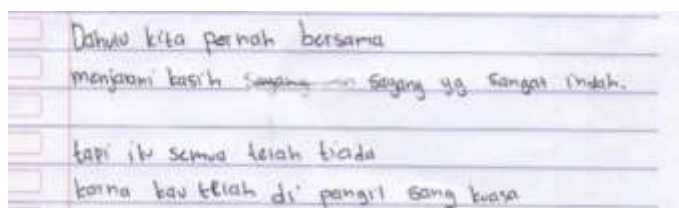 Dahulu kita pernah bersama
menjalani kasih sayang yg sangat indah.
tapi itu semua telah tiada
karna kau telah di' pangil sang kuasa